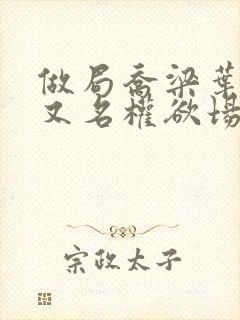 做局喬梁葉
又名權欲場
宗政太子